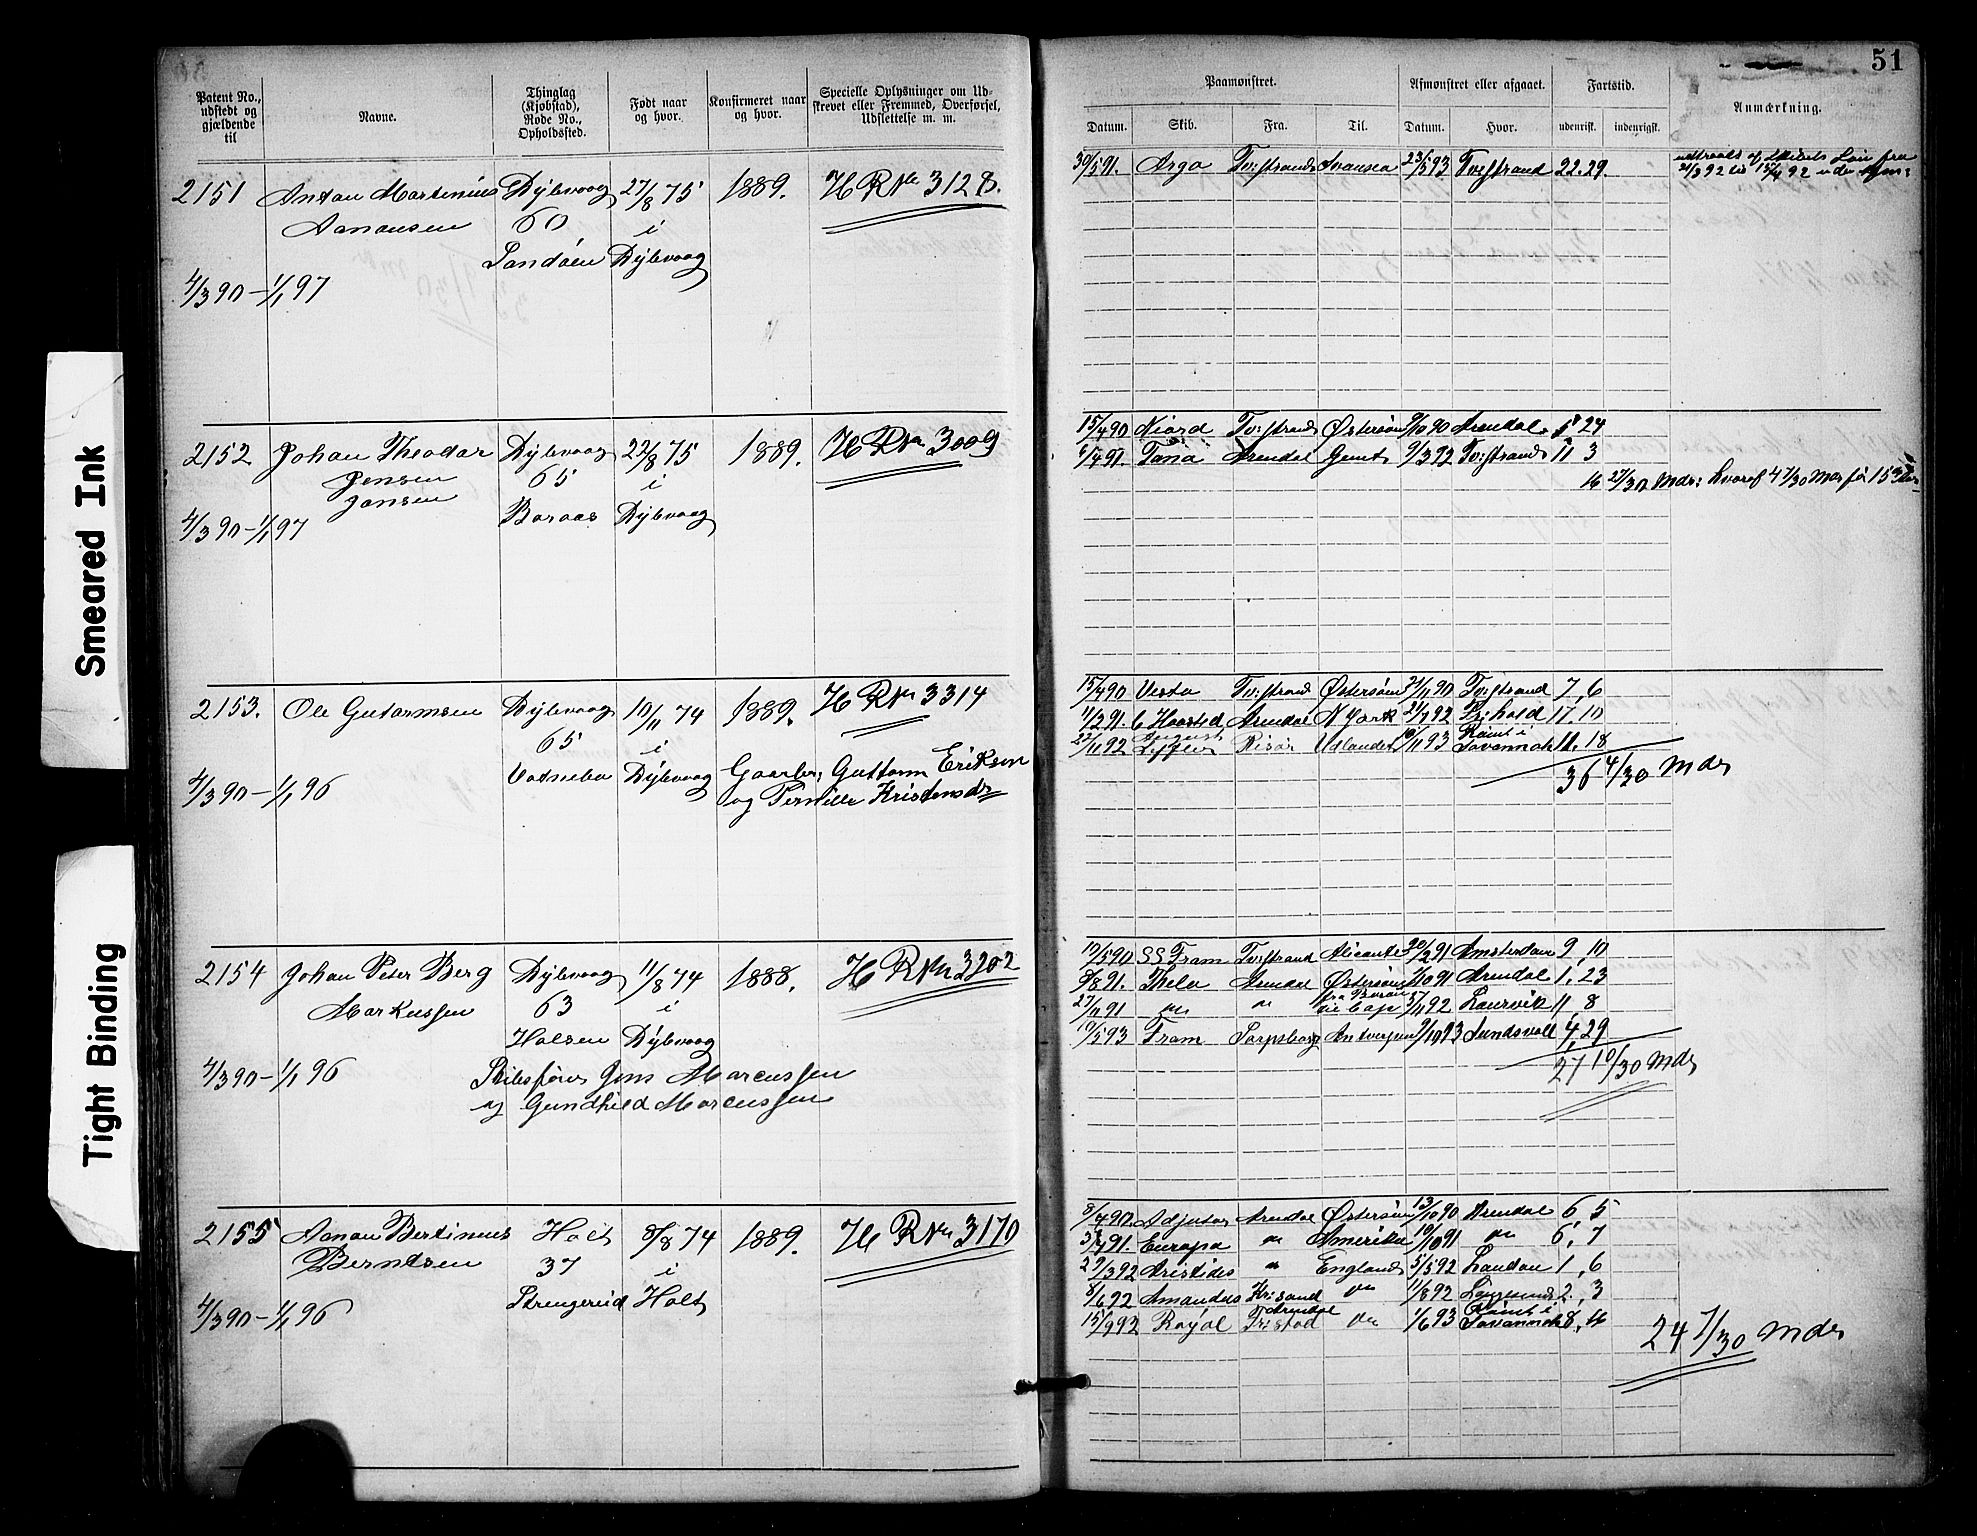 51
Patent No., udstedt og gjældende til
Navne.
Thinglag (Kjøbstad), Rode No., Opholdssted.
Født naar og hvor.
Konfirmeret naar og hvor.
Specielle Oplysninger om Udskrevet eller Fremmed, Overførsel, Udslettelse m. m.
Paamønstret.
Afmønstret eller afgaaet.
Fartstid.
Anmærkning.
Datum. Skib. Fra. Til. Datum. Hvor. udenrigsk. indenrigsk.
2151 Anton Martinius Dybvaag 27/8 75 1889. HR No 3128.
Aanonsen 60 i
Sandøen Dybvaag
4/3 90 – 1/1 97
30/5 91. Argo Tvestrand Svansea 23/5 93 Tvestrand 22.29
2152 Johan Theodor Dybvaag 22/8 75 1889. HR No 3009
Jensen 65 i
Jansen
4/3 90 – 1/1 97 Boraas Dybvaag
15/4 90 Niord Tvestrand Østersøen 9/10 90 Arendal. 5 24
6/4 91. Tana Arendal Gent 9/3 92 Tvestrand 11 3
16 27/30 Mdr: hvoraf 4 7/30
2153. Ole Gutormsen Dybvaag 10/11 74 1889. HR No 3314
65 i
4/3 90 – 1/1 96 Vatnebu Dybvaag Gaarbr. Guttorm Eriksen
og Pernille Kristensdr
15/4 90 Vesta Tvestrand Østersøen 21/11 90 Tvestrand 7, 6
11/3 91. C Haasted Arendal N York 21/7 92 Tvestrand 17, 10
22/11 92 August Leffler Risør Udlandet 10/11 93 Rømt i Savannah 11. 18
36 4/30 Mdr
2154 Johan Peter Berg Dybvaag 11/8 74 1888. HR No 3202
Markussen 63 i
Holsen Dybvaag
4/3 90 – 1/1 96 Skibsfører Jens Marcussen
og Gundhild Marcussen
19/5 90 SS Fram Tvestrand Alicante 20/2 91 Amsterdam 9, 10
9/8 91. Thela Arendal Østersøen 1/10 91 Arendal 1, 23
27/11 91 do do til Cap 5/11 92 Laurvik 11, 8
10/5 93 Fram Sarpsborg Antverpen 9/10 93 Sundsvall 4, 29
21 10/30 Mdr
2155 Aanon Bertinius Holt 8/8 74 1889. HR No 3170
Berntsen 37 i
4/3 90 – 1/1 96 Strengereid Holt
8/4 90. Adjutor Arendal Østersøen 13/10 90 Arendal 6 5
3/4 91. Europa do Amerika 10/10 91 do 6, 7
29/3 92 Aristides do England 5/5 92 London 1, 6
8/6 92 Amandus Krisand do 11/8 92 Langesund 2. 3
15/9 92 Royal Arendal Fristad do 1/6 93 Rømt i Savannah 8, 14
24 7/30 Mdr
Smeared Ink
Tight Binding